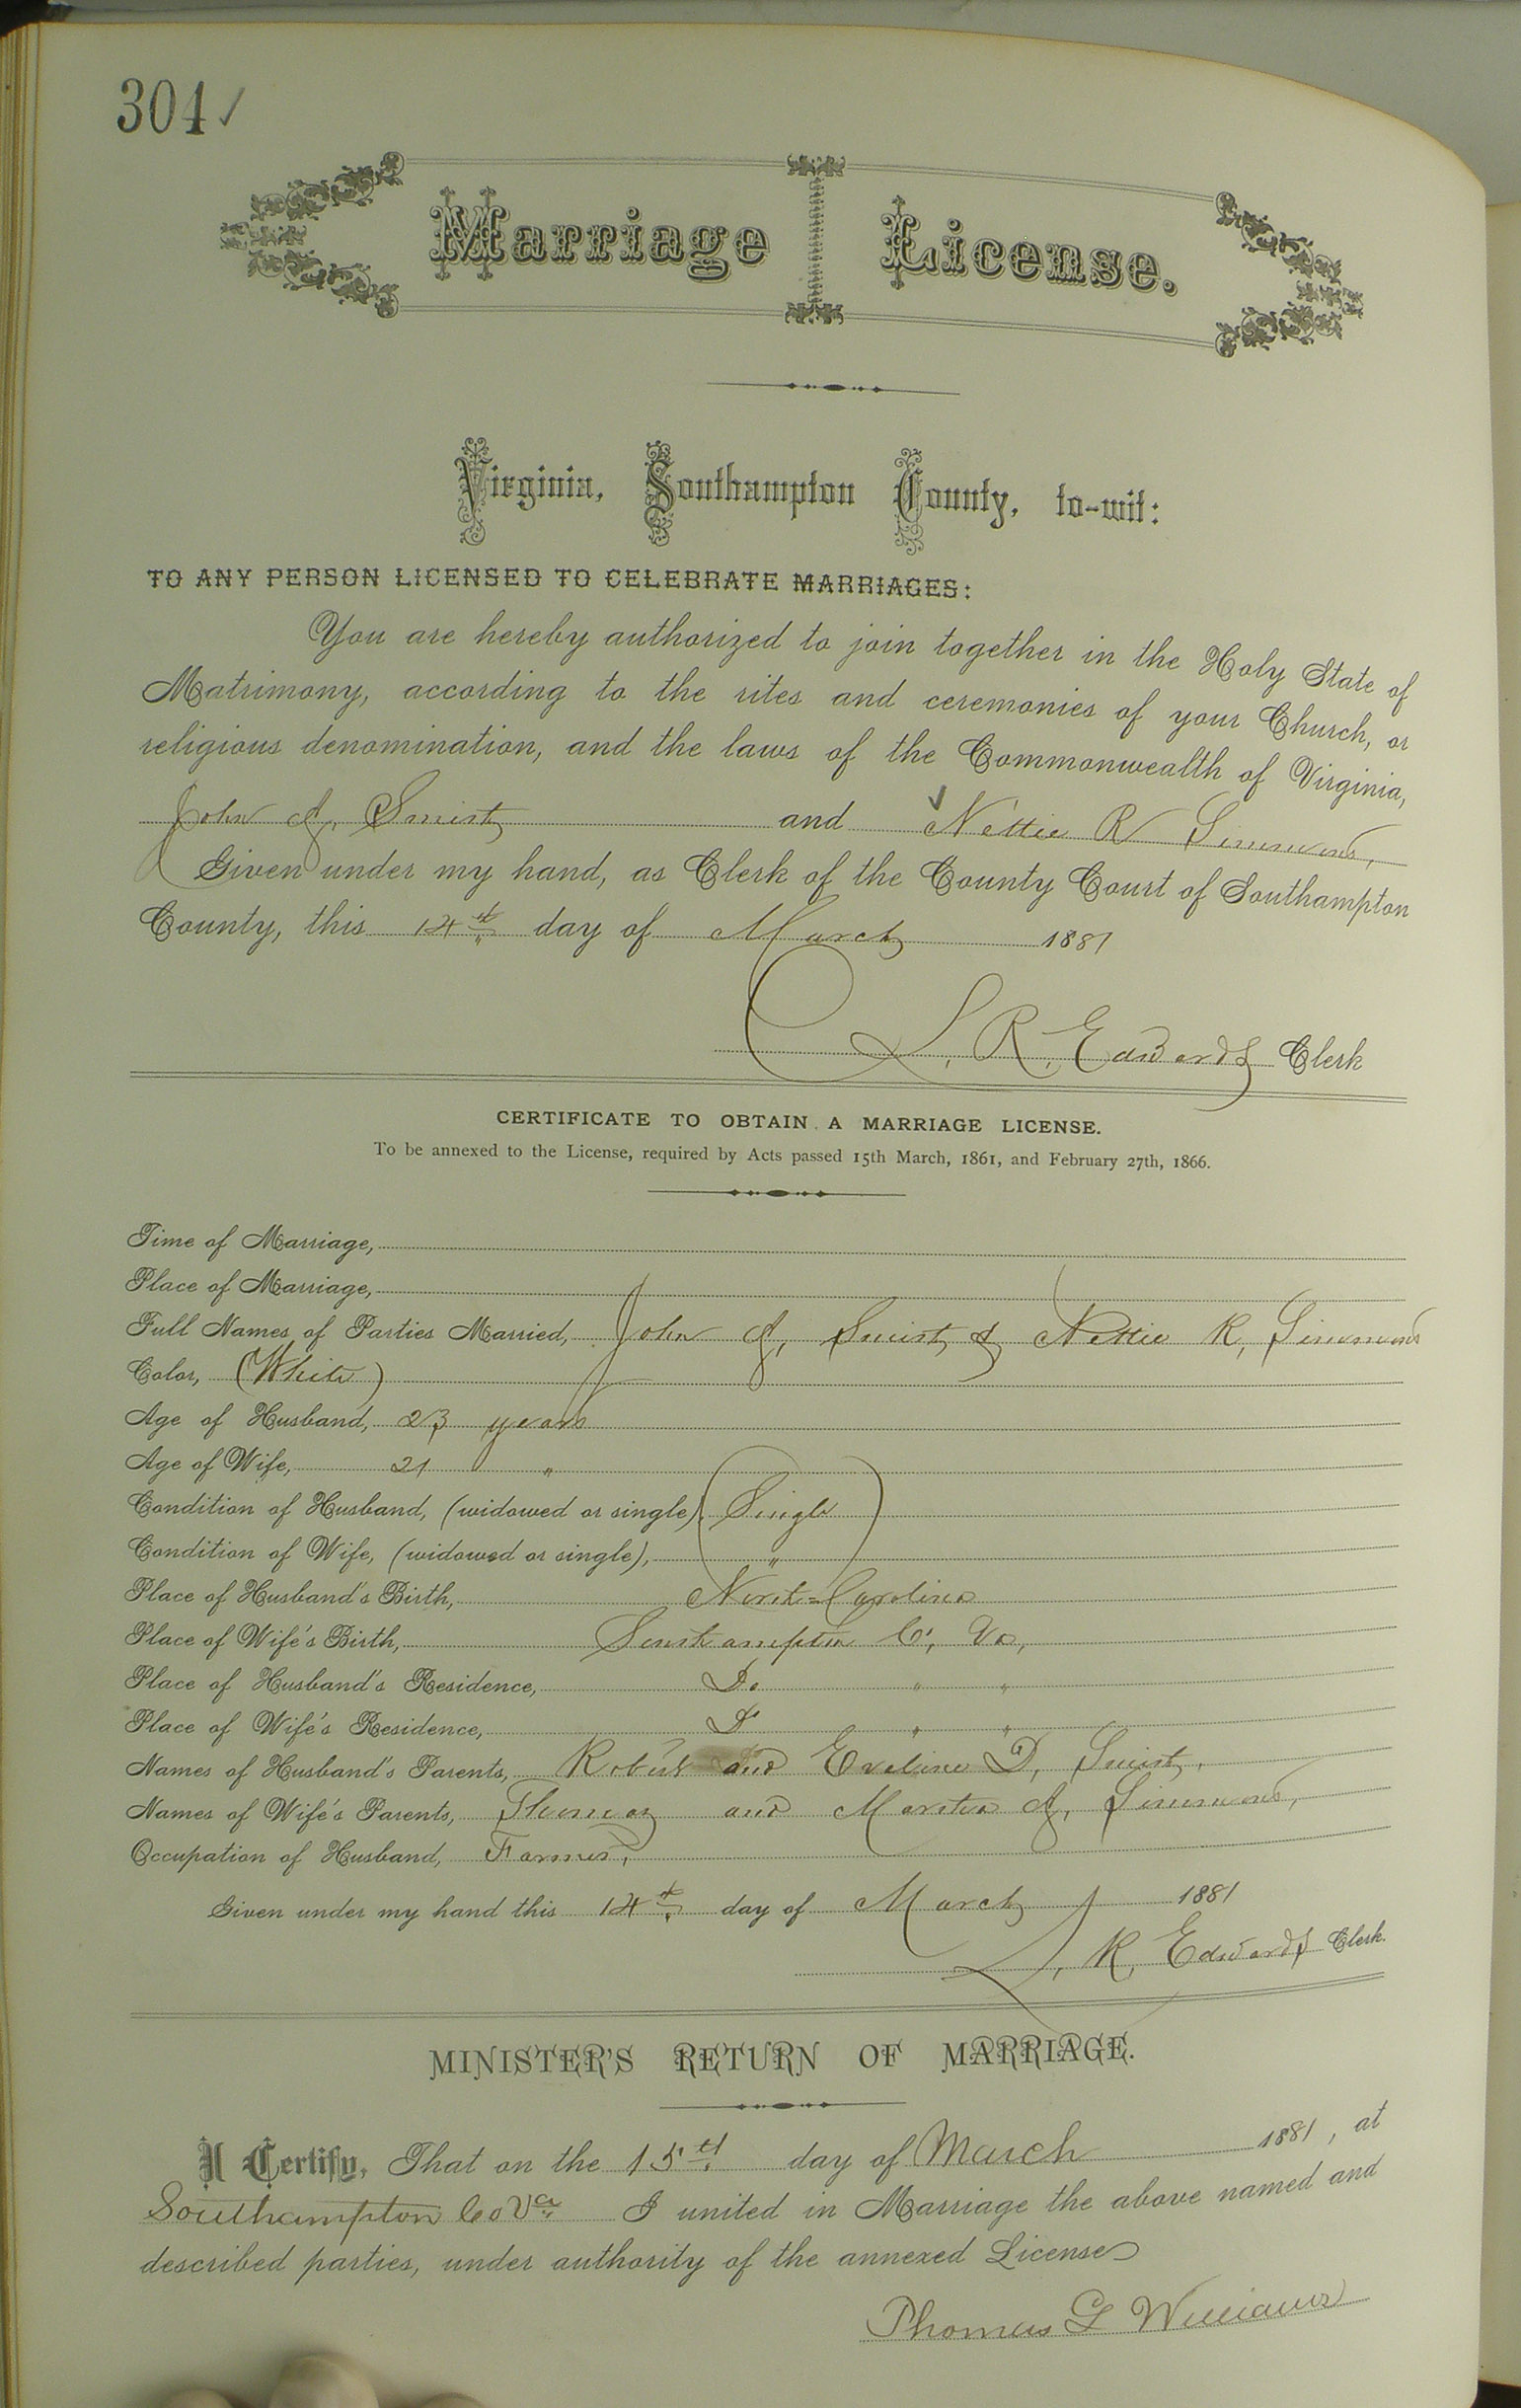 304 ✓
Marriage License.
Virginia, Southampton County, to-wit:
TO ANY PERSON LICENSED TO CELEBRATE MARRIAGES:
You are hereby authorized to join together in the Holy State of
Matrimony, according to the rites and ceremonies of your Church, or
religious denomination, and the laws of the Commonwealth of Virginia,
John J, Smith and Nettie R Simmons,
Given under my hand, as Clerk of the County Court of Southampton
County, this 14th day of March 1881
L, R, Edwards Clerk
CERTIFICATE TO OBTAIN A MARRIAGE LICENSE.
To be annexed to the License, required by Acts passed 15th March, 1861, and February 27th, 1866.
Time of Marriage,
Place of Marriage,
Full Names of Parties Married, John J, Smith & Nettie R, Simmons
Color, (White)
Age of Husband, 23 years
Age of Wife, 21 "
Condition of Husband, (widowed or single), Single
Condition of Wife, (widowed or single), "
Place of Husband's Birth, North=Carolina
Place of Wife's Birth, Southampton Co, Va,
Place of Husband's Residence, Do " "
Place of Wife's Residence, Do " "
Names of Husband's Parents, Robert and Eveline D, Smith,
Names of Wife's Parents, Thomas and Martha J, Simmons,
Occupation of Husband, Farmer,
Given under my hand this 14th day of March 1881
L, R, Edwards Clerk.
MINISTER'S RETURN OF MARRIAGE.
I Certify, That on the 15th day of March 1881, at
Southampton Co Va I united in Marriage the above named and
described parties, under authority of the annexed License
Thomas G Williams